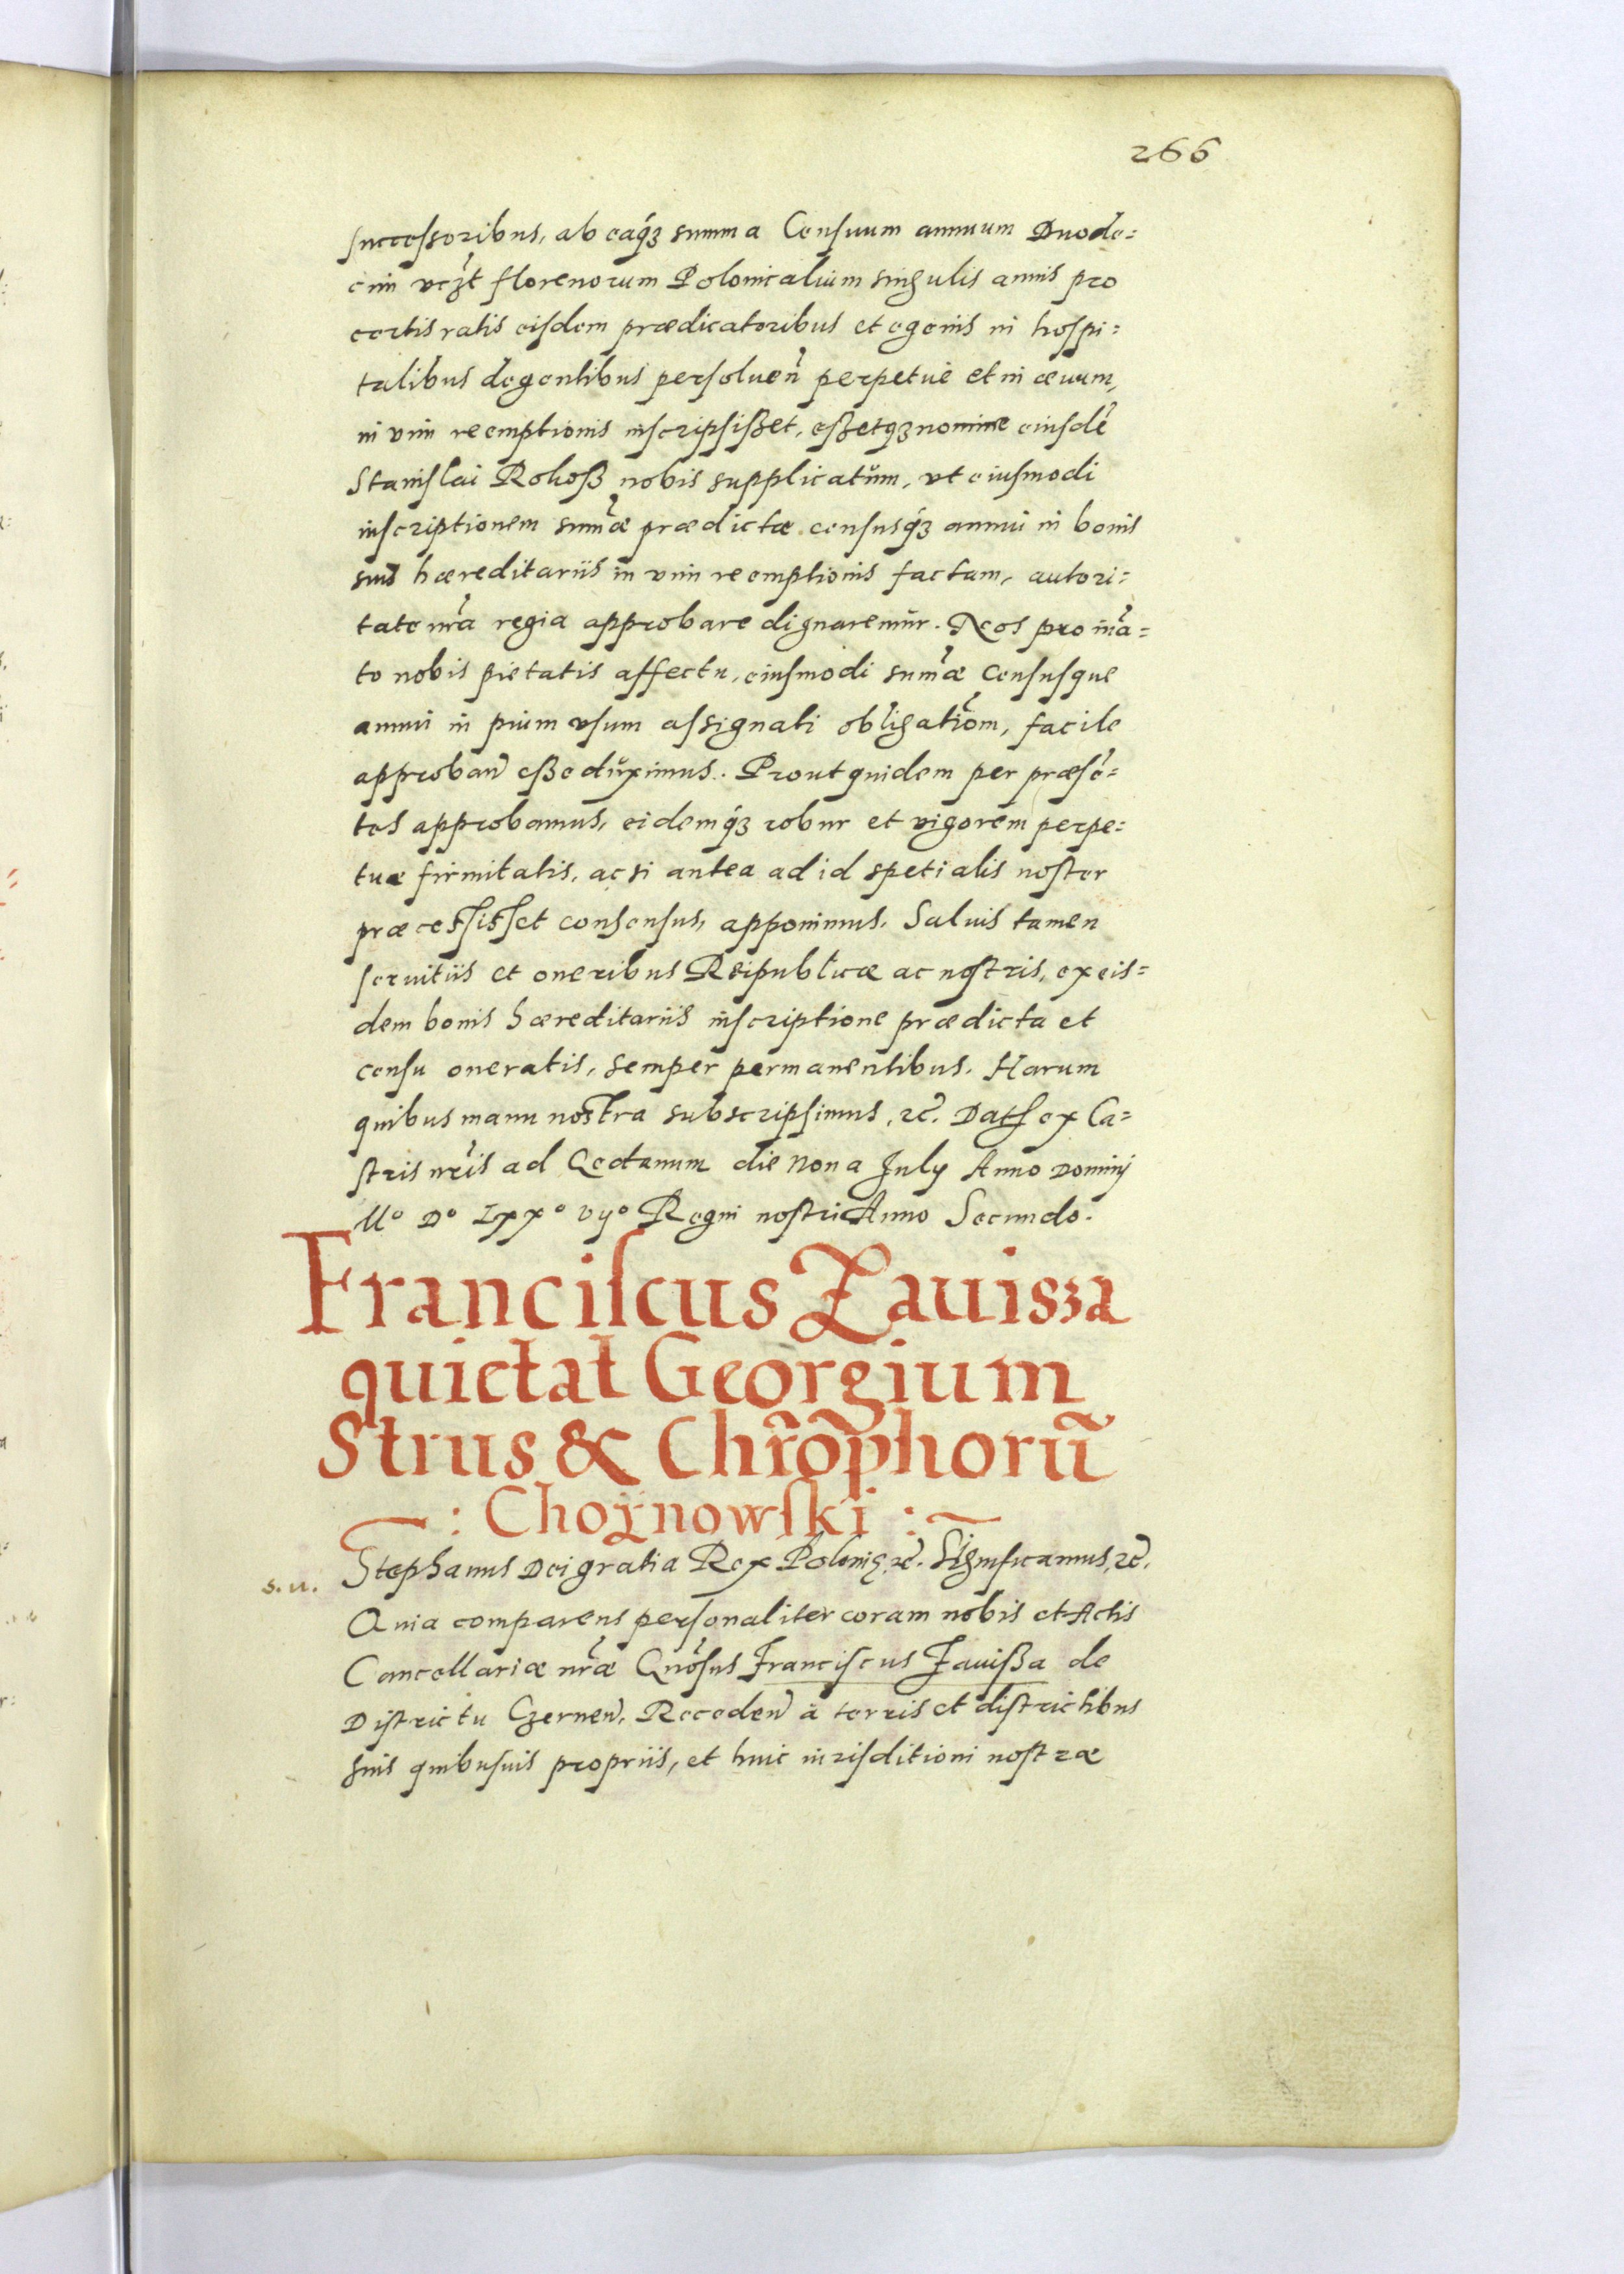 266
successoribus, ab eaq́ꝫ summa Censuum annuum Duode=
cim vcꝫt florenorum Polonicalium singulis annis pro
certis ratis eisdem prædicatoribus et egenis in hospi=
talibus degentibus persoluen̄ perpetuè et in æuum,
in vim reemptionis inscripsißet, eßetqꝫ nomine eiusdē
Stanislai Rokoß nobis supplicatŭm, vt eiusmodi
inscriptionem sum̄æ prædictæ censusq́ꝫ annui in bonis
suis hæreditariis in vim reemptionis factam, autori=
tate nr̄a regia approbare dignaremur. Nos pro in̄a=
to nobis pietatis affectu, eiusmodi sum̄æ Censusque
annui in pium vsum assignati obligatiōm, facile
approban̄ eße dŭximus. Prout quidem per præsē=
tes approbamus, eidemq́ꝫ robur et vigorem perpe=
tuæ firmitatis, ac si antea ad id spetialis noster
præcessisset consensus, apponimus. Saluis tamen
seruitiis et oneribus Reipublicæ ac nostris, ex eis=
dem bonis hæreditariis inscriptione prædicta et
censu oneratis, semper permanentibus. Harum
quibus manu nostra subscripsimus, ꝛc̄. Dat ex Ca=
stris nr̄is ad Gedanum die Nona July Anno Dominj
Mº Dº Lxxº vyº Regni nostri Anno Secundo.
Franciscus Zauisza
quietat Georgium
Strus & Chr̄op̄horū
: Choynowski :
s. u.
Stephanus Dei gratia Rex Polonię, ꝛc̄. Significamus, ꝛc̄.
Quia comparens personaliter coram nobis et Actis
Cancellariæ nr̄æ Gn̄osus Franciscus Zauißa de
Districtu Czernen̄, Receden̄ à terris et districtibus
suis quibusuis propriis, et huic iurisditioni nostræ